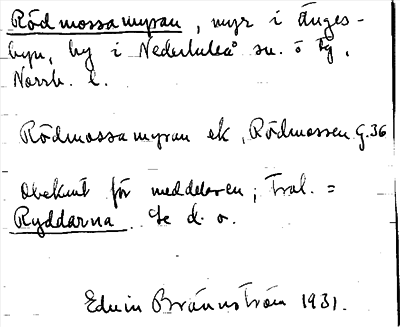 Rödmossamyran, myr i Änges-
byn, by i Nederluleå sn. o tg,
Norrb. l.
Rödmossamyran ek, Rödmossen G.36
Obekant för meddelaren; Trol. =
Ryddarna. Se d. o.
Edvin Brännström 1931.